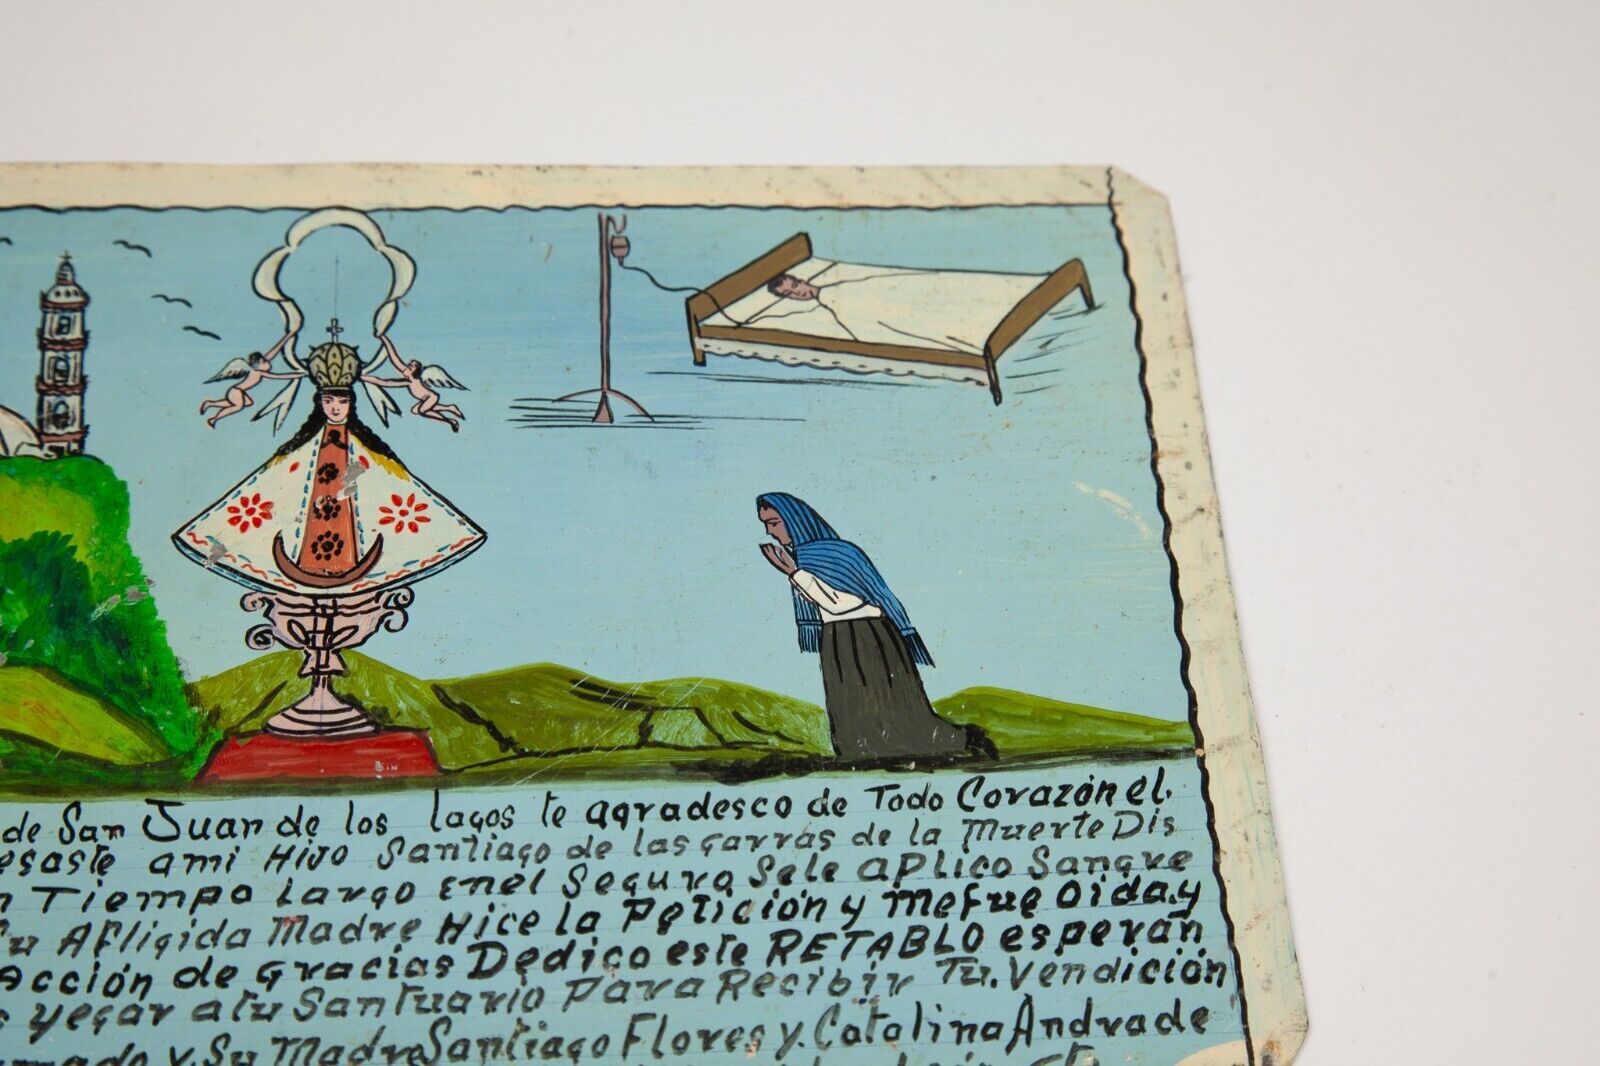 de San Juan de los lagos te agradesco de Todo Corazón el.
esaste ami Hijo Santiago de las garras de la Muerte Dis
n Tiempo Largo enel Seguro Sele aplico Sangre
Tu Afligida Madre Hice la Petición y Mefue Oida.y
Acción de gracias Dedico este RETABLO esperán
s yegar atu Santuario Para Recibir Tu. Vendición
mado y. Su Madre Santiago Flores y. Catalina Andrade